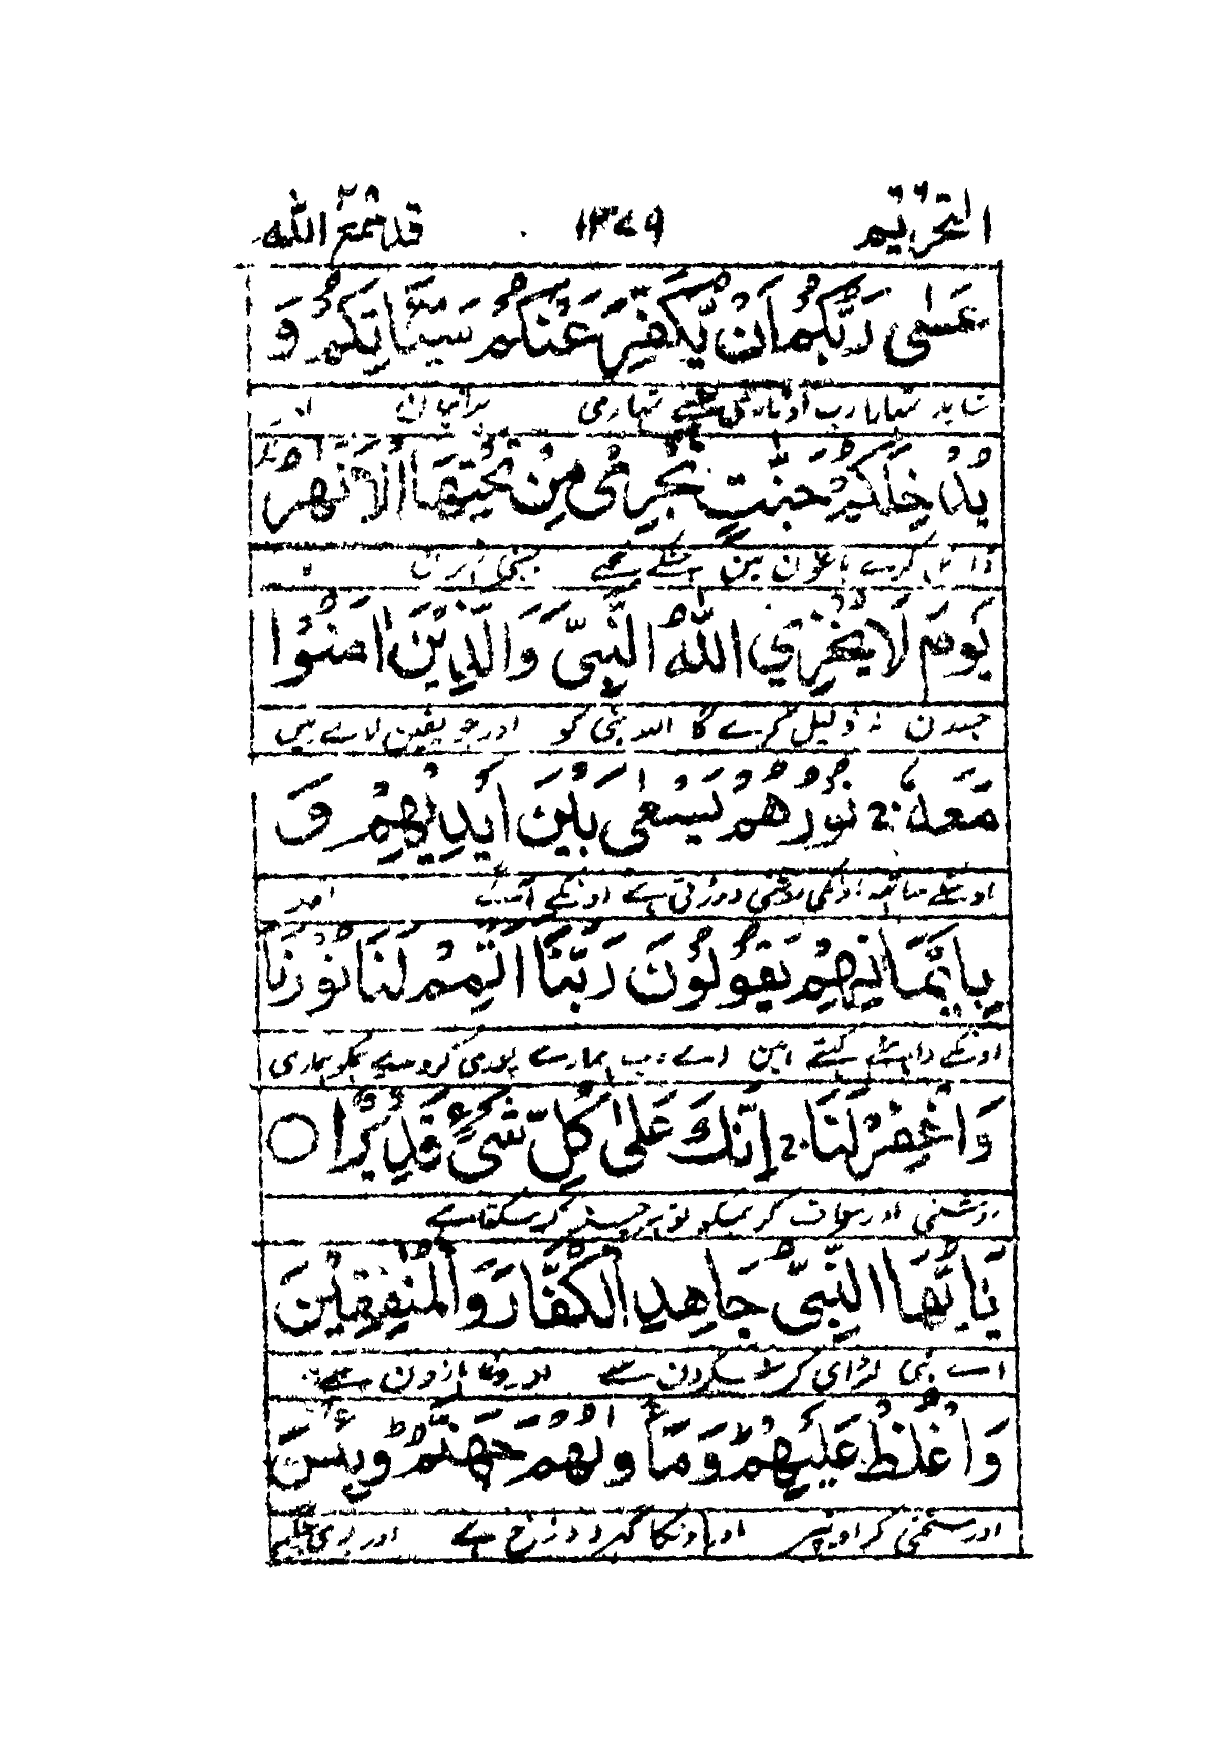 التحريم ١٣٧٩ قد سمع الله
عَسٰى رَبُّكُمْ اَنْ يُّكَفِّرَ عَنْكُمْ سَيِّاٰتِكُمْ وَ
شاید تمہارا رب اوتارے تمسے تمہاری برائیان اور
يُدْخِلَكُمْ جَنّٰتٍ تَجْرِيْ مِنْ تَحْتِهَا الْاَنْهٰرُ
داخل کرے باغون مین جنکے نیچے بہتی نہرین
يَوْمَ لَا يُخْزِي اللّٰهُ النَّبِيَّ وَالَّذِيْنَ اٰمَنُوْا
جسدن نہ ذلیل کرے گا اللہ نبی کو اور جو یقین لائے ہیں
مَعَهٗ ۚ نُوْرُهُمْ يَسْعٰى بَيْنَ اَيْدِيْهِمْ وَ
اوسکے ساتھ اونکی روشنی دوڑتی ہے اونکے آگے اور
بِاَيْمَانِهِمْ يَقُوْلُوْنَ رَبَّنَا اَتْمِمْ لَنَا نُوْرَنَا
اونکے داہنے کہتے ہین اے رب ہمارے پوری کر دے ہمکو ہماری
وَاغْفِرْ لَنَا ۚ اِنَّكَ عَلٰى كُلِّ شَيْءٍ قَدِيْرٌ ○
روشنی اور معاف کر ہمکو تو ہر چیز کر سکتا ہے
يٰاَيُّهَا النَّبِيُّ جَاهِدِ الْكُفَّارَ وَالْمُنٰفِقِيْنَ
اے نبی لڑائی کر منکرون سے اور دغا بازون سے
وَاغْلُظْ عَلَيْهِمْ ۭ وَمَاْوٰىهُمْ جَهَنَّمُ ۭ وَبِئْسَ
اور سختی کر اونپر اور اونکا گھر دوزخ ہے اور بری جگہہ